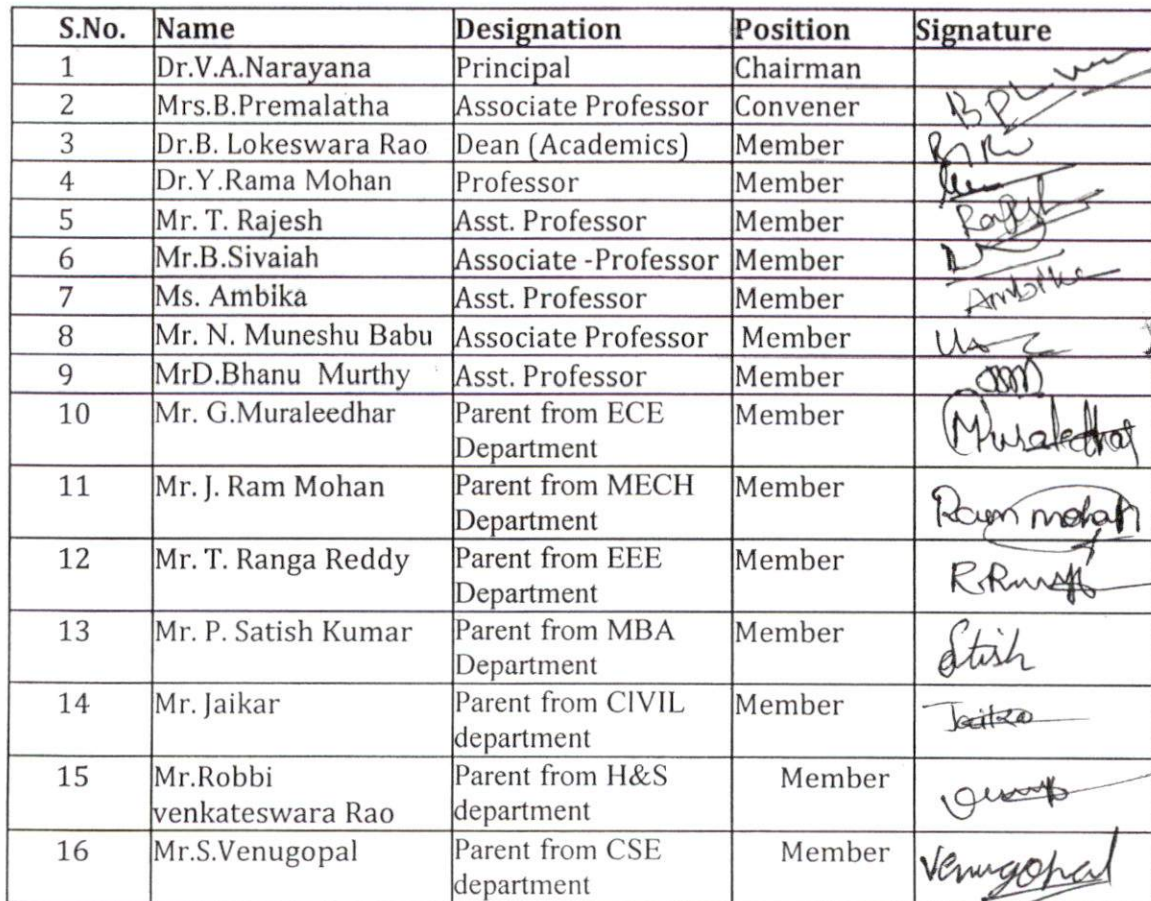 S.No. Name Designation Position Signature
1 Dr.V.A.Narayana Principal Chairman
2 Mrs.B.Premalatha Associate Professor Convener
3 Dr.B. Lokeswara Rao Dean (Academics) Member
4 Dr.Y.Rama Mohan Professor Member
5 Mr. T. Rajesh Asst. Professor Member
6 Mr.B.Sivaiah Associate -Professor Member
7 Ms. Ambika Asst. Professor Member Ambika
8 Mr. N. Muneshu Babu Associate Professor Member
9 MrD.Bhanu Murthy Asst. Professor Member
10 Mr. G.Muraleedhar Parent from ECE Member
Department
11 Mr. J. Ram Mohan Parent from MECH Member
Department Ram mohan
12 Mr. T. Ranga Reddy Parent from EEE Member
Department
13 Mr. P. Satish Kumar Parent from MBA Member
Department
14 Mr. Jaikar Parent from CIVIL Member
department
15 Mr.Robbi Parent from H&S Member
venkateswara Rao department
16 Mr.S.Venugopal Parent from CSE Member Venugopal
department